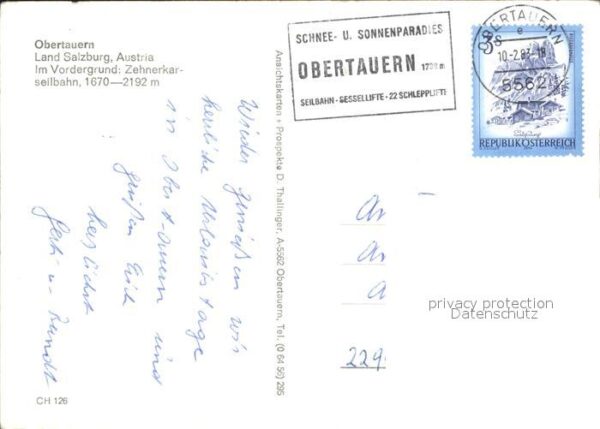 Obertauern
Land Salzburg, Austria
Im Vordergrund: Zehnerkar-
seilbahn, 1670—2192 m
SCHNEE- U. SONNENPARADIES
OBERTAUERN 1739 m
SEILBAHN - SESSELLIFTE - 22 SCHLEPPLIFTE
OBERTAUERN
e
10.-2.83-18
5562
3s
REPUBLIK ÖSTERREICH
Wieder genießen wir
herrliche Urlaubstage
in Obertauern und
grüßen Euch
herzlichst
Ansichtskarten + Prospekte D. Thallinger, A-5562 Obertauern, Tel. (0 64 56) 295
An
An
A
229
privacy protection
Datenschutz
CH 126